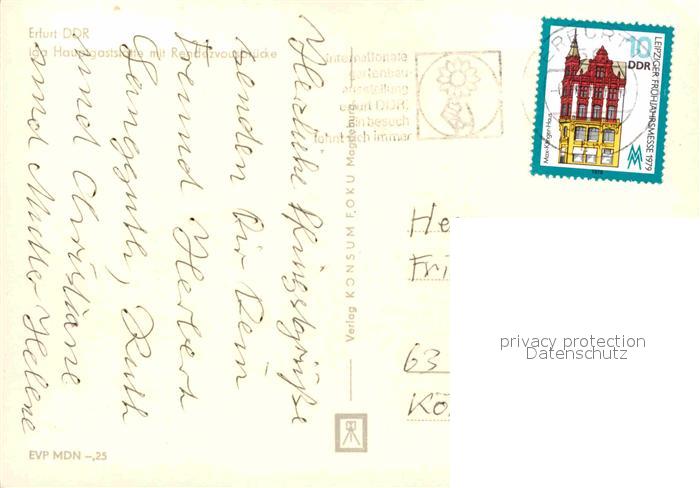 Erfurt DDR
Iga Hauptgaststätte mit Rendezvousbrücke
Herzliche Pfingstgrüße
senden Dir Dein
Freund Herbert
Ruth
und Christiane
und Mutter Helene
EVP MDN –,25
Verlag KONSUM FOKU Magdeburg
internationale
gartenbau-
ausstellung
erfurt DDR,
ein besuch
lohnt sich immer
ERFURT
10
DDR
LEIPZIGER FRÜHJAHRSMESSE 1979
Maxklingerhaus
1979
He
Fri
63
Kö
privacy protection
Datenschutz